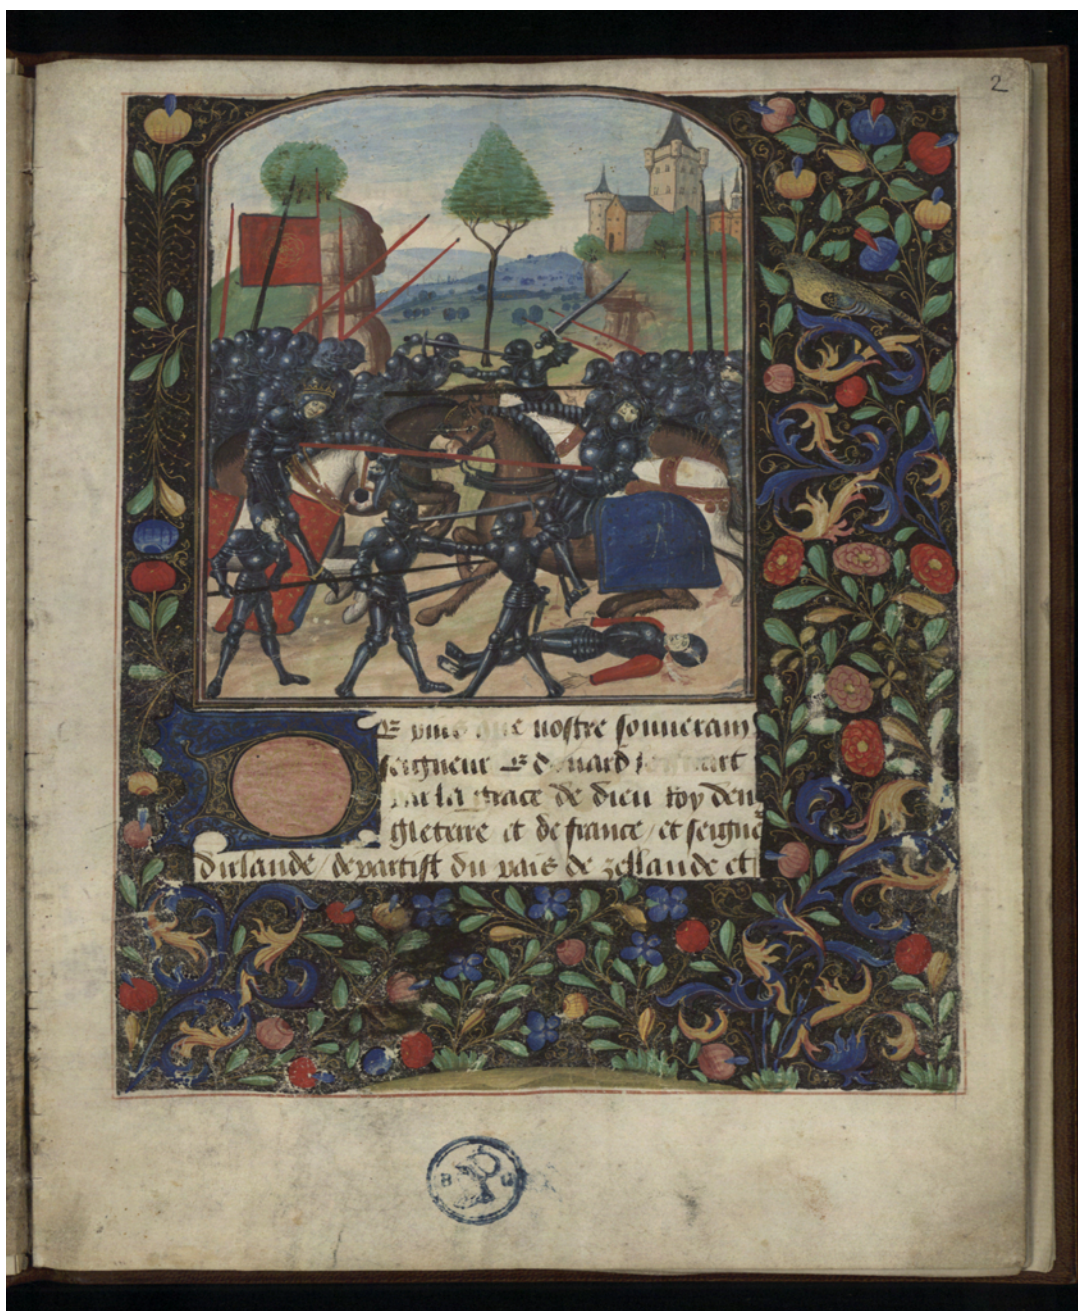 2
E puis que nostre souverain
seigneur Edouard
par la grace de dieu roy den
gleterre et de france / et seigne
dirlande / departist du pais de zellande et
B